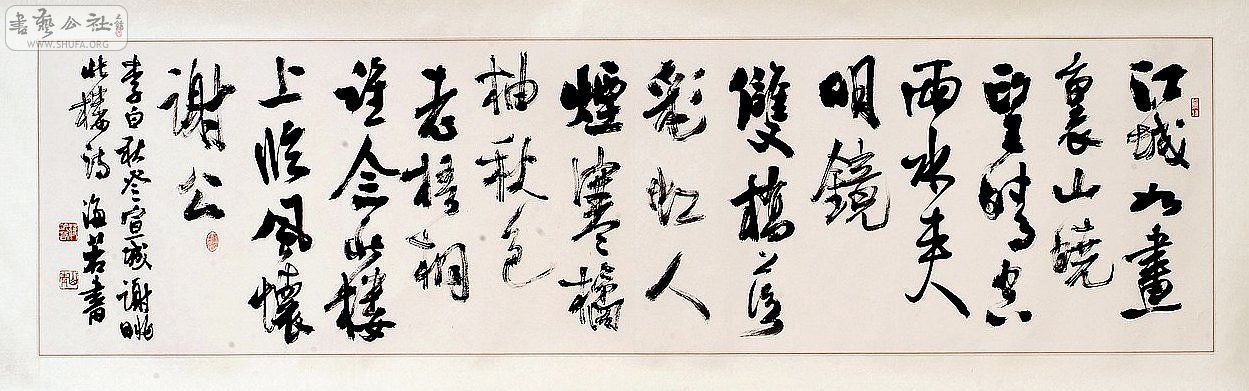 書藝公社
www.SHUFA.ORG
江城如畫
裏山曉
望晴空
兩水夾
明鏡
雙橋落
彩虹人
煙寒橘
柚秋色
老梧桐
誰念北樓
上臨風懷
謝公
李白秋登宣城謝朓
北樓詩海若書